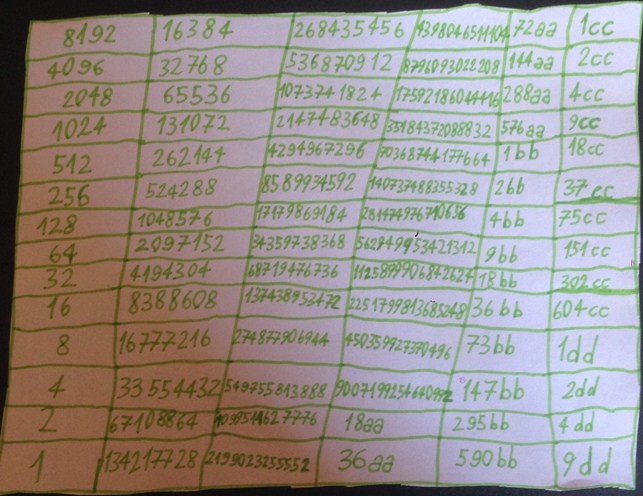 8192 16384 268435456 4398046511104 72aa 1cc
4096 32768 536870912 8796093022208 144aa 2cc
2048 65536 1073741824 17592186044416 288aa 4cc
1024 131072 2147483648 35184372088832 576aa 9cc
512 262144 4294967296 70368744177664 1bb 18cc
256 524288 8589934592 140737488355328 2bb 37cc
128 1048576 17179869184 281474976710656 4bb 75cc
64 2097152 34359738368 562949953421312 9bb 151cc
32 4194304 68719476736 1125899906842624 18bb 302cc
16 8388608 137438953472 2251799813685248 36bb 604cc
8 16777216 274877906944 450359927370496 73bb 1dd
4 33554432 549755813888 9007199254640992 147bb 2dd
2 67108864 1099511627776 18aa 295bb 4dd
1 134217728 2199023255552 36aa 590bb 9dd